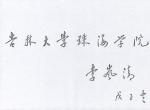 吉林大学珠海学院
李岚清
戊子冬